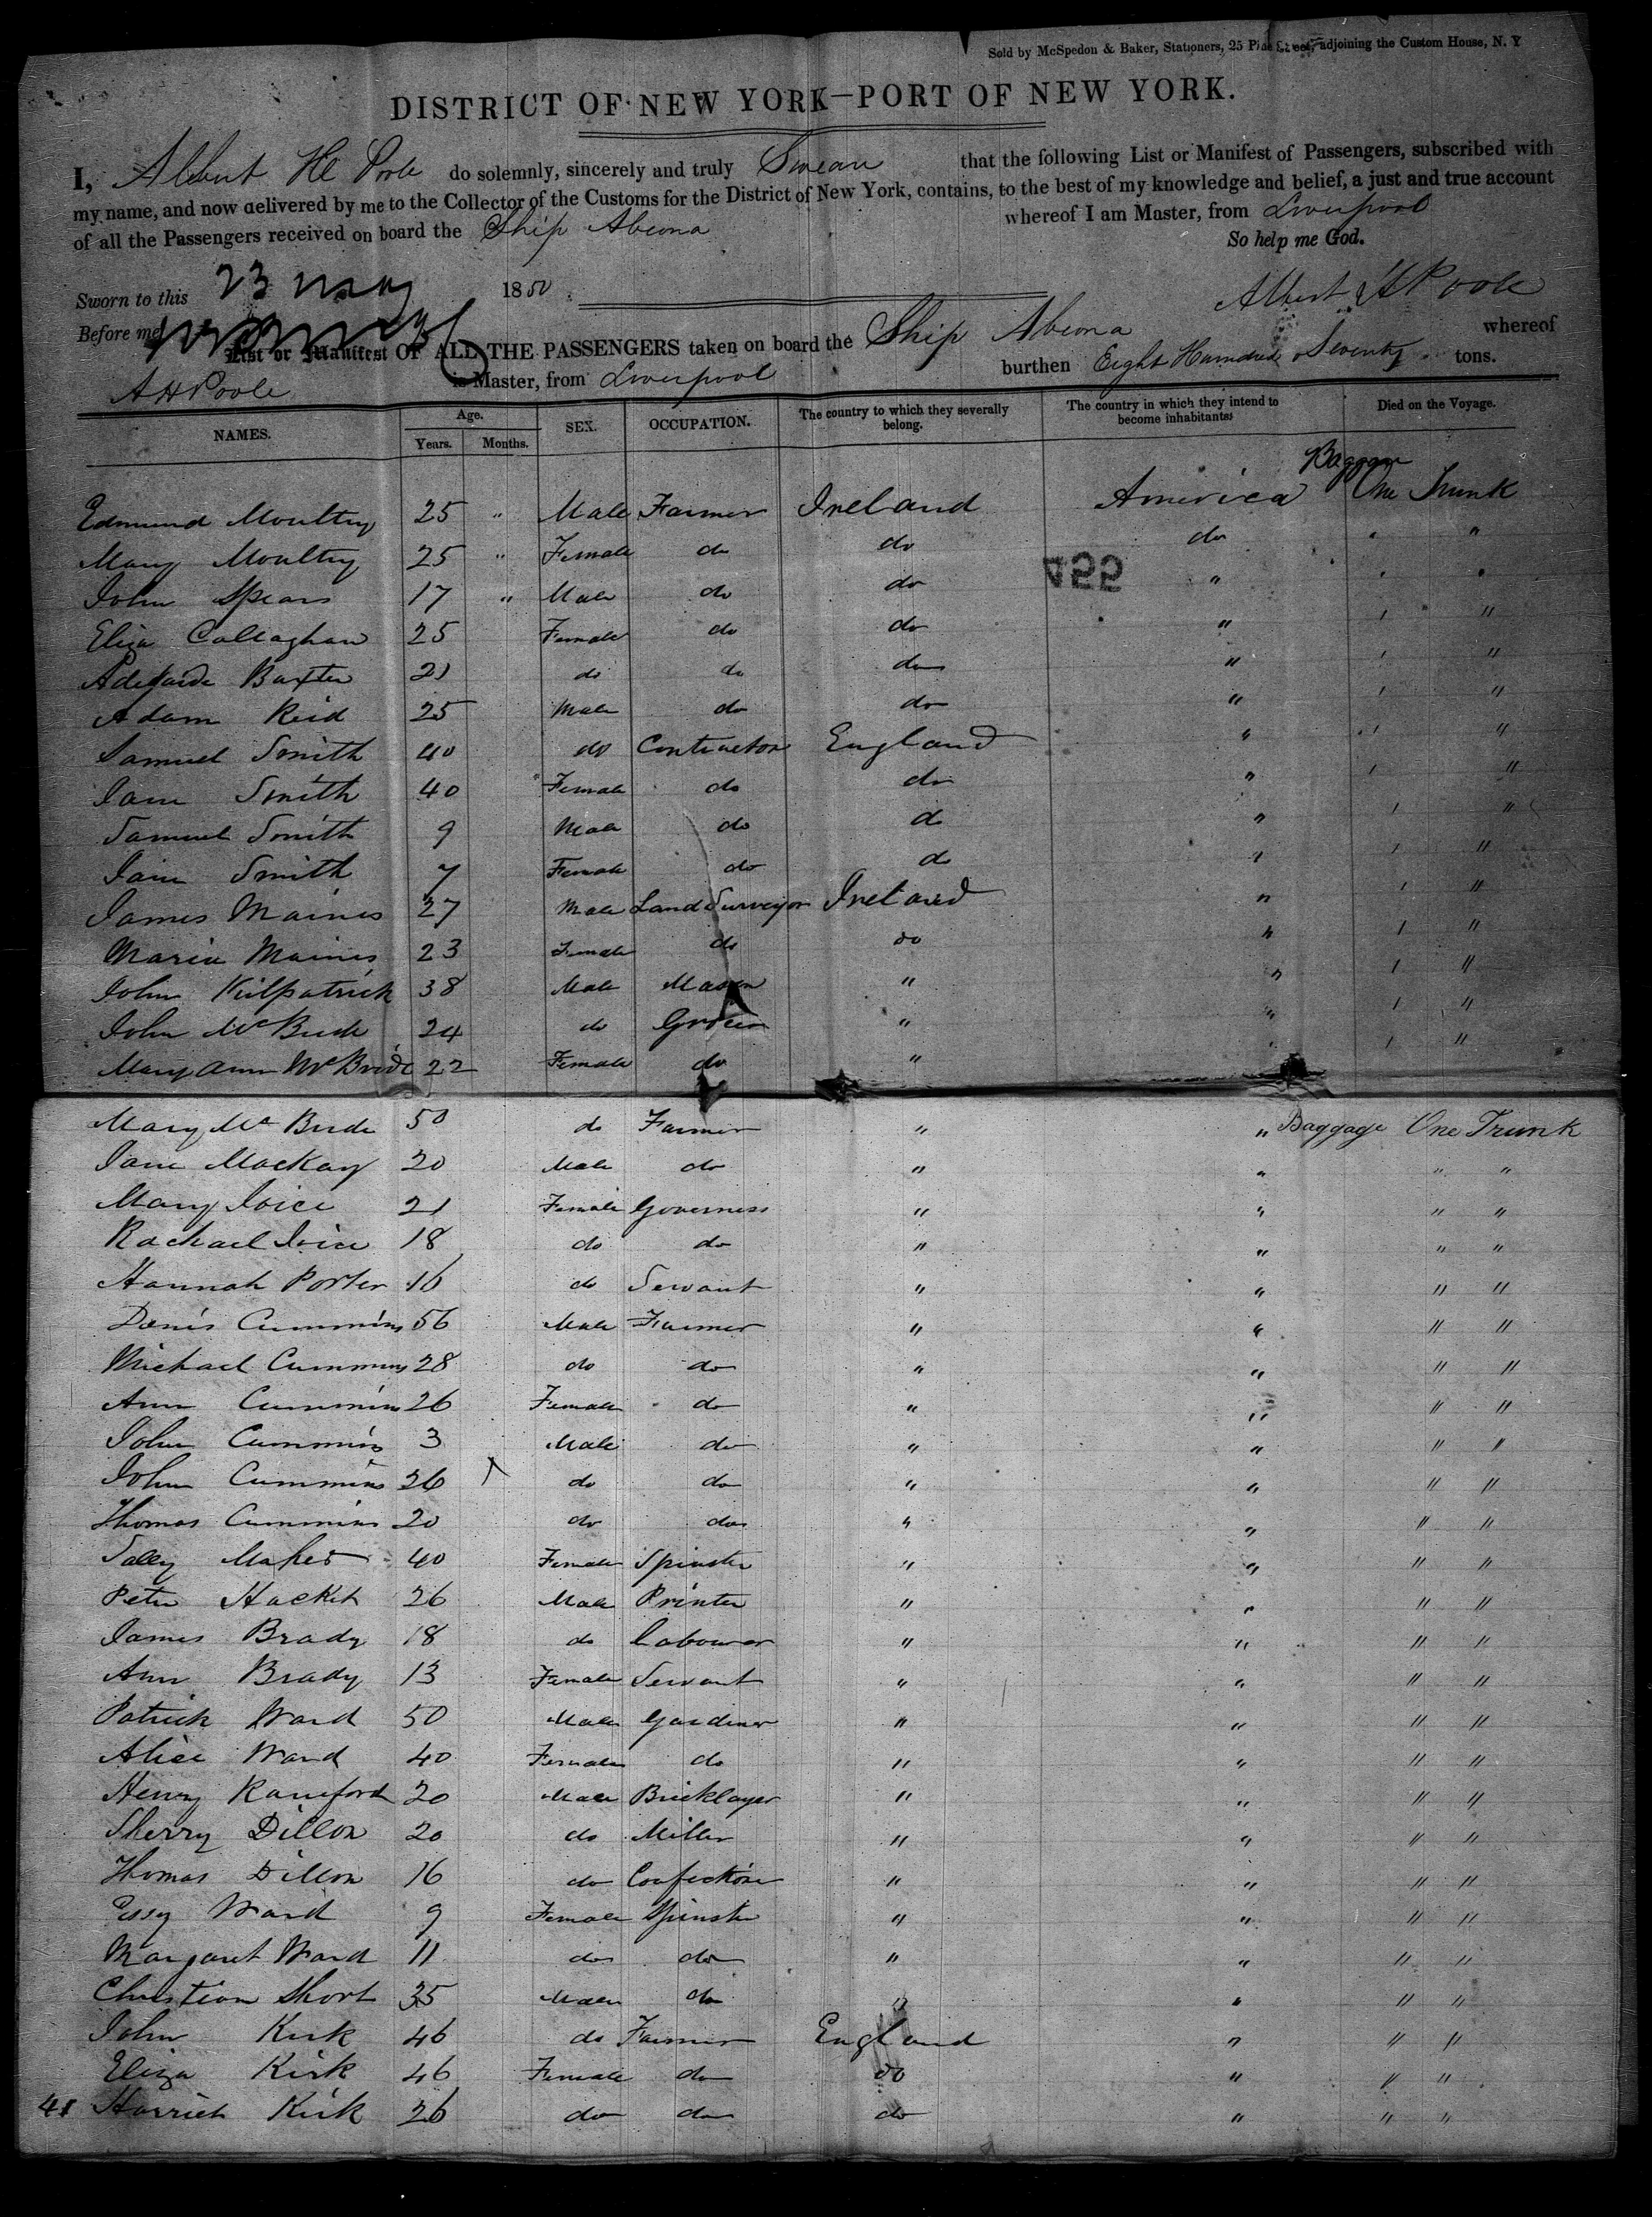 Sold by McSpedon & Baker, Stationers, 25 Pine Street, adjoining the Custom House, N. Y
DISTRICT OF NEW YORK—PORT OF NEW YORK.
I, Albert H Poole do solemnly, sincerely and truly Swear that the following List or Manifest of Passengers, subscribed with
my name, and now delivered by me to the Collector of the Customs for the District of New York, contains, to the best of my knowledge and belief, a just and true account
of all the Passengers received on board the Ship Abeona whereof I am Master, from Liverpool
So help me God.
Sworn to this 23 May 1850
Albert H Poole
Before me
List or Manifest OF ALL THE PASSENGERS taken on board the Ship Abeona whereof
A H Poole is Master, from Liverpool burthen Eight Hundred Seventy tons.
NAMES. Age. Years. Months. SEX. OCCUPATION. The country to which they severally belong. The country in which they intend to become inhabitants Died on the Voyage.
Baggage
Edmund Moultry 25 " Male Farmer Ireland America One Trunk
Mary Moultry 25 " Female do do do " "
John Spears 17 " Male do do " " "
455
Eliza Callaghan 25 Female do do " " "
Baxter 21 do do do " " "
Adam Reid 25 Male do do " " "
Samuel Smith 40 do Contractor England " " "
Jane Smith 40 Female do do " " "
Samuel Smith 9 Male do do " " "
Jane Smith 7 Female do do " " "
James Maines 27 Male Land Surveyor Ireland " " "
Maria Maines 23 Female do do " " "
John Kilpatrick 38 Male Mason " " " "
John McBride 24 do Grocer " " " "
Mary Ann McBride 22 Female do " " " "
Mary McBride 50 do Farmer " " Baggage One Trunk
Jane Mackay 20 Male do " " " "
Mary Joice 21 Female Governess " " " "
Rachael Joice 18 do do " " " "
Hannah Porter 16 do Servant " " " "
Denis Cummins 56 Male Farmer " " " "
Michael Cummins 28 do do " " " "
Ann Cummins 26 Female do " " " "
John Cummins 3 Male do " " " "
John Cummins 26 do do " " " "
Thomas Cummins 20 do do " " " "
Sally 40 Female Spinster " " " "
Peter Hacket 26 Male Printer " " " "
James Brady 18 do Labourer " " " "
Ann Brady 13 Female Servant " " " "
Patrick Ward 50 Male Gardener " " " "
Alice Ward 40 Female do " " " "
Henry Ranford 20 Male Bricklayer " " " "
Sherry Dillon 20 do Miller " " " "
Thomas Dillon 16 do Confectioner " " " "
Essy Ward 9 Female Spinster " " " "
Margaret Ward 11 do do " " " "
Christian Short 35 Male do " " " "
John Kirk 46 do Farmer England " " "
Eliza Kirk 46 Female do do " " "
41 Harriet Kirk 26 do do do " " "